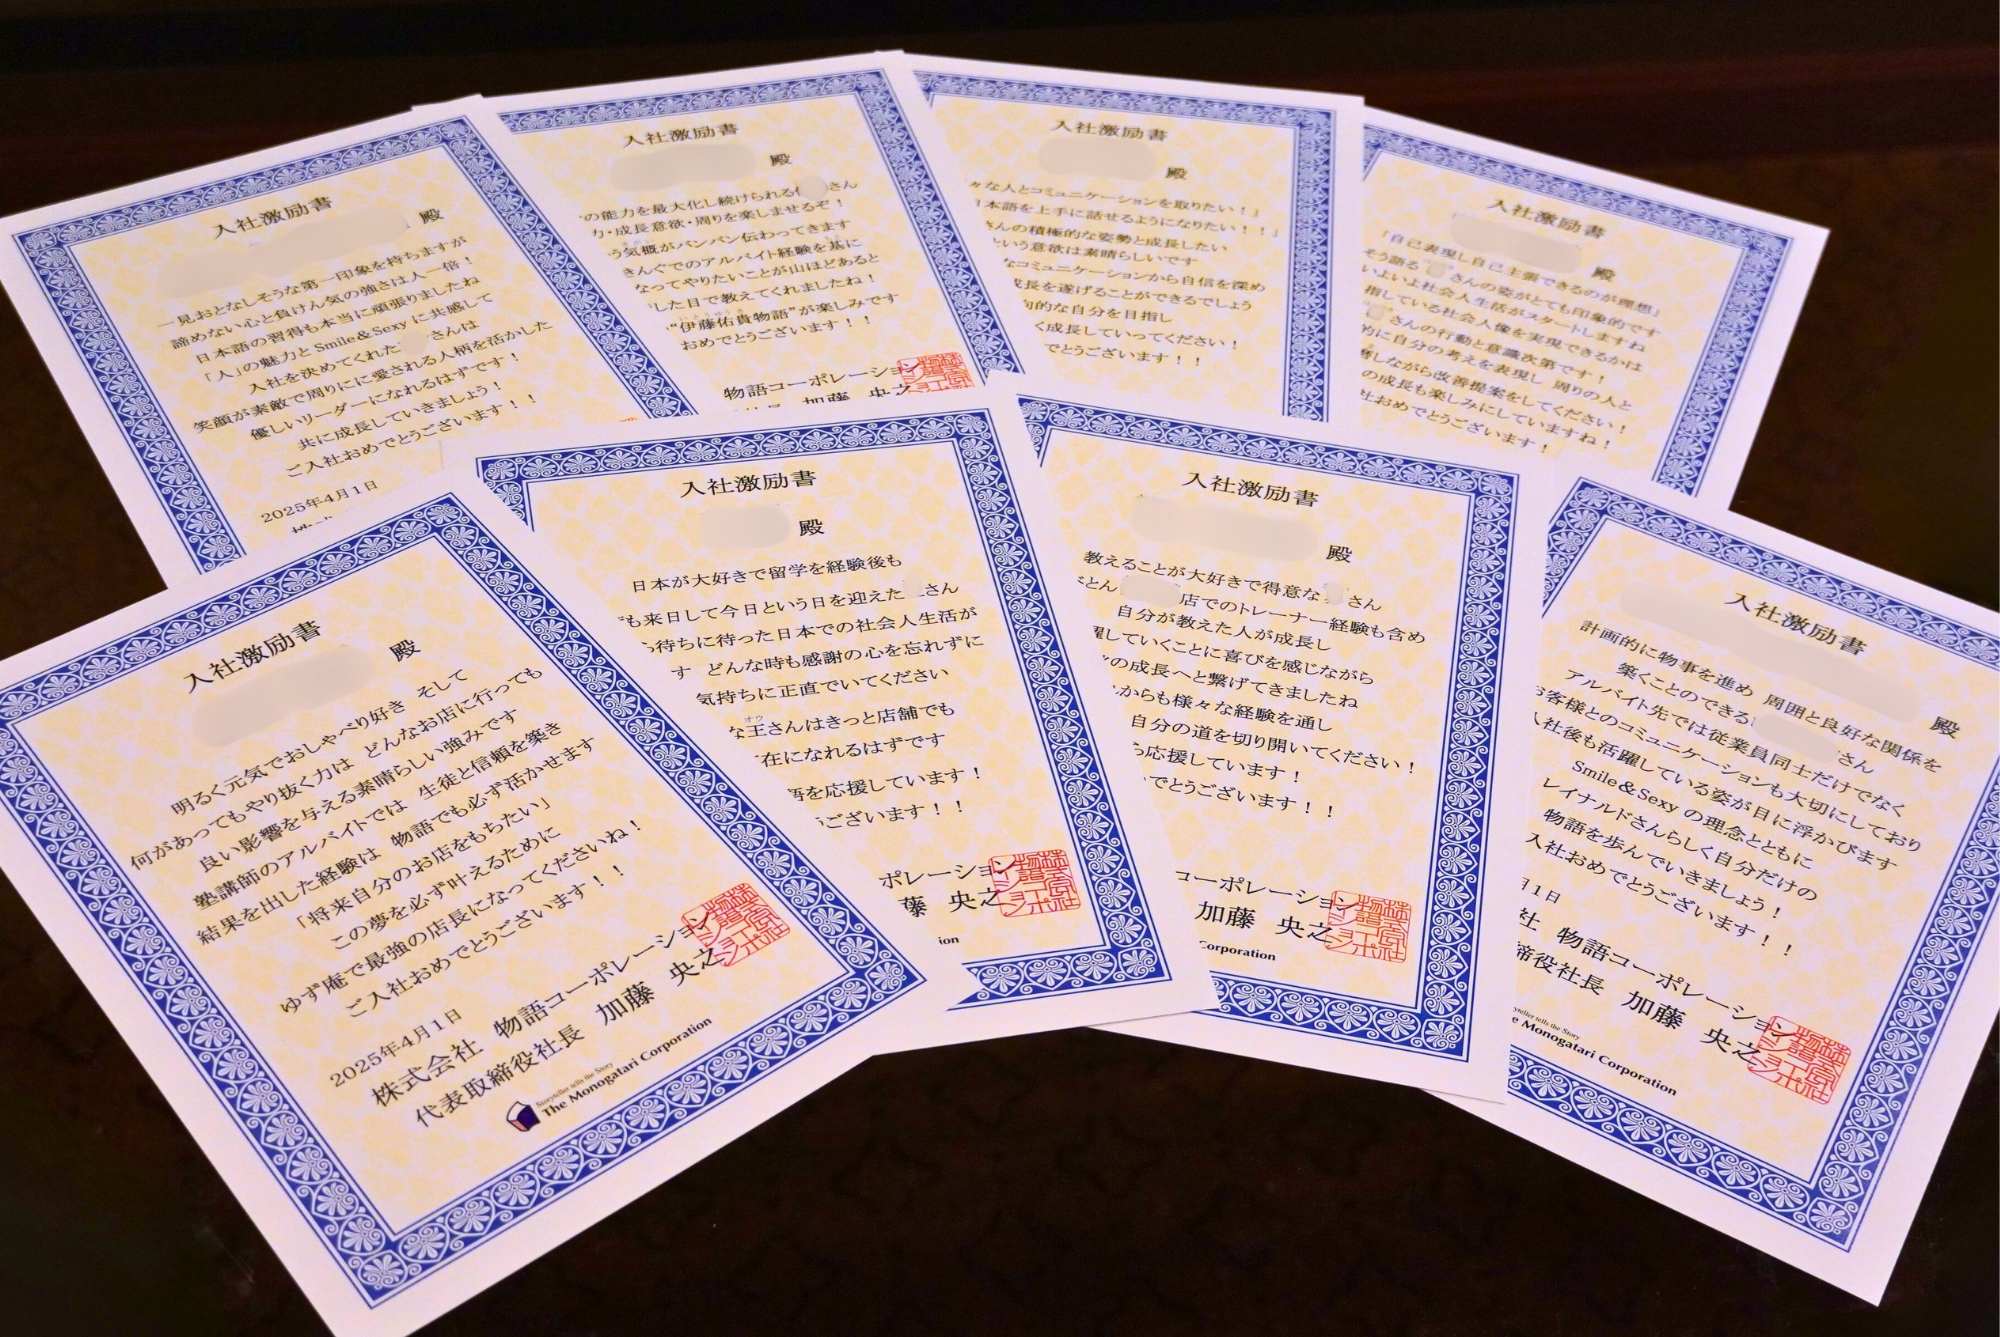 入社激励書
殿
一見おとなしそうな第一印象を持ちますが
諦めない心と負けん気の強さは人一倍！
日本語の習得も本当に頑張りましたね
「人」の魅力と Smile&Sexy に共感して
入社を決めてくれた さんは
笑顔が素敵で周りにに愛される人柄を活かした
優しいリーダーになれるはずです！
共に成長していきましょう！
ご入社おめでとうございます！！
2025年4月1日
入社激励書
殿
の能力を最大化し続けられる さん
力・成長意欲・周りを楽しませるぞ！
う気概がバンバン伝わってきます
きんぐでのアルバイト経験を基に
なってやりたいことが山ほどあると
した目で教えてくれましたね！
“伊藤佑貴物語”が楽しみです
おめでとうございます！！
物語コーポレーション
加藤 央之
入社激励書
殿
々な人とコミュニケーションを取りたい！」
日本語を上手に話せるようになりたい！！」
さんの積極的な姿勢と成長したい
という意欲は素晴らしいです
なコミュニケーションから自信を深め
成長を遂げることができるでしょう
向的な自分を目指し
く成長していってください！
でとうございます！！
入社激励書
殿
「自己表現し自己主張できるのが理想」
そう語る さんの姿がとても印象的です
いよいよ社会人生活がスタートしますね
指している社会人像を実現できるかは
さんの行動と意識次第です！
的に自分の考えを表現し 周りの人と
しながら改善提案をしてください！
の成長も楽しみにしていますね！
社おめでとうございます！
入社激励書
殿
明るく元気でおしゃべり好き そして
何があってもやり抜く力は どんなお店に行っても
良い影響を与える素晴らしい強みです
塾講師のアルバイトでは 生徒と信頼を築き
結果を出した経験は 物語でも必ず活かせます
「将来自分のお店をもちたい」
この夢を必ず叶えるために
ゆず庵で最強の店長になってくださいね！
ご入社おめでとうございます！！
2025年4月1日
株式会社 物語コーポレーション
代表取締役社長 加藤 央之
Storyteller tells the Story
The Monogatari Corporation
入社激励書
殿
日本が大好きで留学を経験後も
も来日して今日という日を迎えた さん
ら待ちに待った日本での社会人生活が
す どんな時も感謝の心を忘れずに
気持ちに正直でいてください
な王さんはきっと店舗でも
オウ
在になれるはずです
語を応援しています！
うございます！！
ポレーション
藤 央之
ion
入社激励書
殿
教えることが大好きで得意な さん
とん 店でのトレーナー経験も含め
自分が教えた人が成長し
躍していくことに喜びを感じながら
の成長へと繋げてきましたね
からも様々な経験を通し
自分の道を切り開いてください！
ら応援しています！
でとうございます！！
コーポレーション
加藤 央之
Corporation
入社激励書
殿
計画的に物事を進め 周囲と良好な関係を
築くことのできる さん
アルバイト先では従業員同士だけでなく
お客様とのコミュニケーションも大切にしており
入社後も活躍している姿が目に浮かびます
Smile&Sexy の理念とともに
レイナルドさんらしく自分だけの
物語を歩んでいきましょう！
入社おめでとうございます！！
月1日
社 物語コーポレーション
締役社長 加藤 央之
yteller tells the Story
e Monogatari Corporation